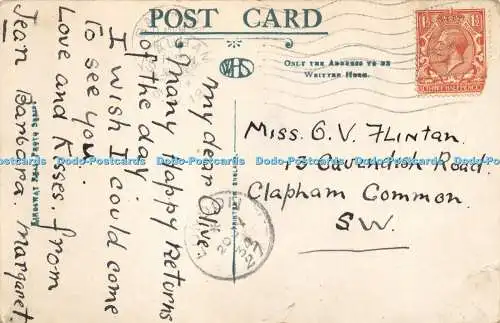 POST CARD
WHS
ONLY THE ADDRESS TO BE
WRITTEN HERE.
My dear Olive
Many Happy Returns
of the day
I wish I could come
to see you.
Love and Kisses. from
Jean Barbara. Margaret
Miss. O. V. Flintan.
13 Cavendish Road.
Clapham Common.
S.W.
THREE HALFPENCE
Dodo-Postcards Dodo-Postcards Dodo-Postcards Dodo-Postcards